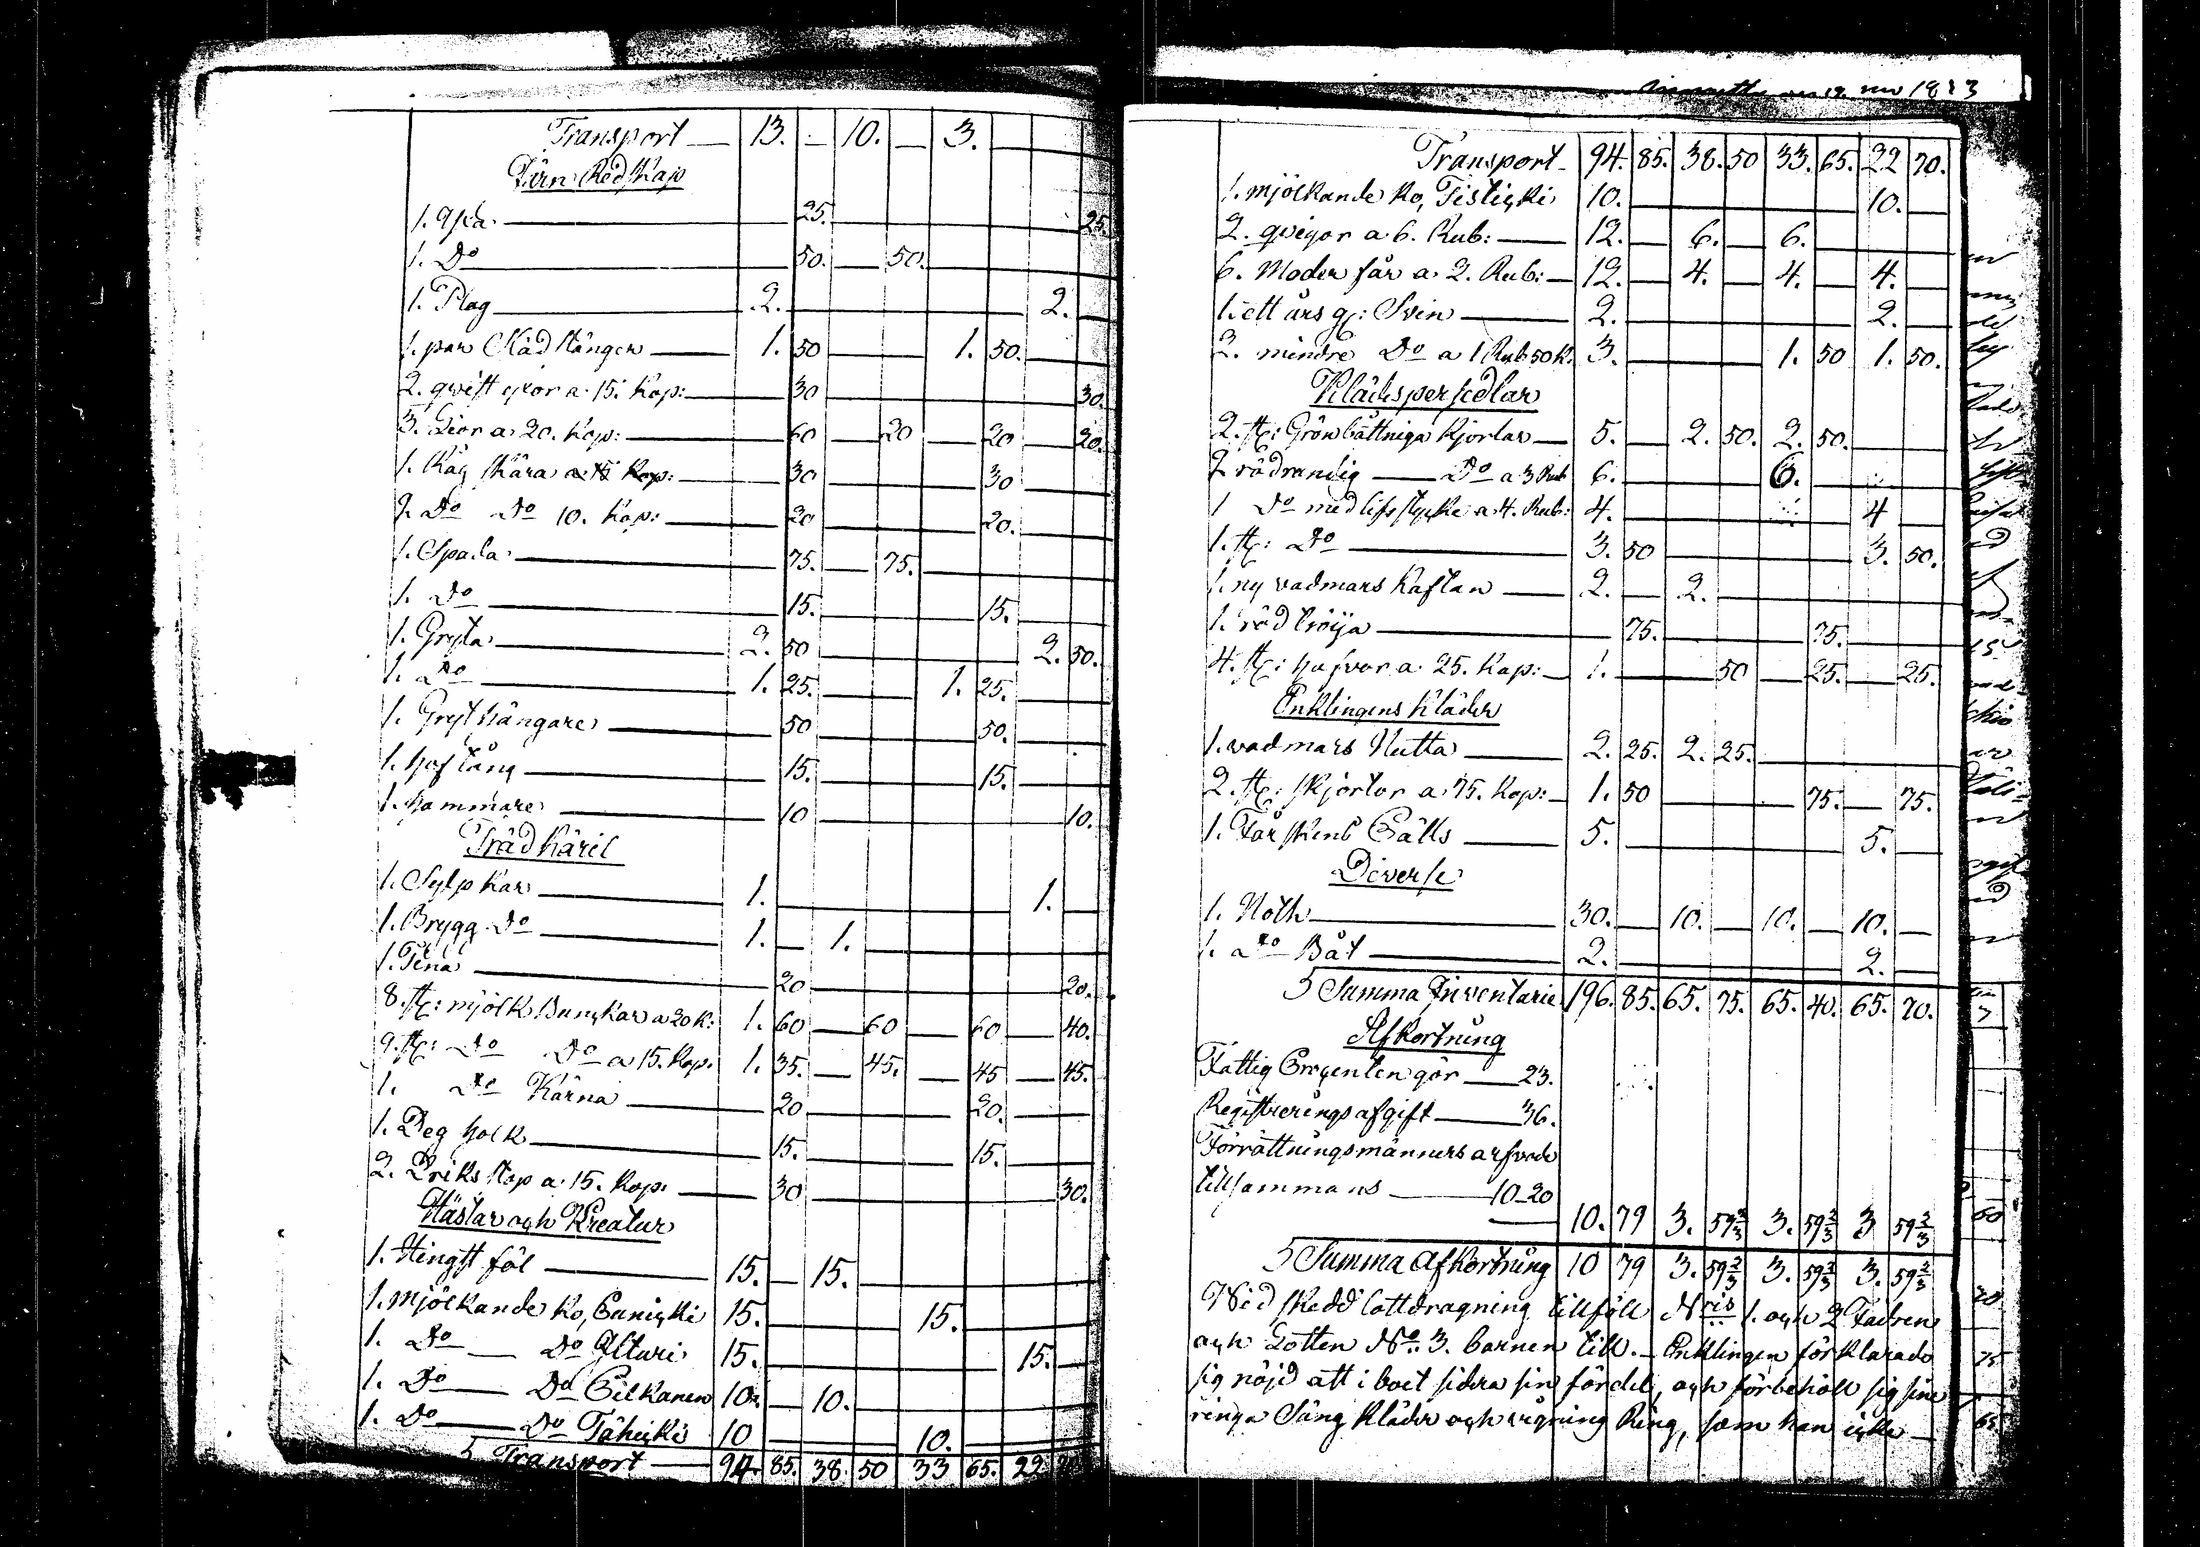 Transport — 13. — 10. — 3. —
Järn Redskap
1. Yxa — 25. — 25.
1. Do — 50. — 50.
1. Plog — 2. — 2.
1. par Räd stänger — 1. 50 — 1. 50.
2. qvist yxor a 15. Kop: — 30 — 30.
3. Lior a 20. Kop: — 60 — 20 — 20 — 20.
1. Råg skära — 30 — 30
2. Do Do 10. Kop: — 20 — 20.
1. Spada — 75. — 75.
1. Do — 15. — 15.
1. Gryta — 2. 50 — 2. 50.
1. Do — 1. 25. — 1. 25.
1. Gryt hängare — 50 — 50.
1. hof tång — 15. — 15.
1. hammare — 10 — 10.
Träd Käril
1. Sylp Kar — 1. — 1.
1. Brygg Do — 1. — 1.
1. Tena — 20 — 20.
8. st: mjölk Bunckar a 20 K: 1. 60 — 60 — 60 — 40.
9. st: Do Do a 15. Kop. 1. 35. — 45. — 45 — 45.
1. Do Kärna — 20 — 20.
1. Deg holk — 15. — 15.
2. Driks stop a 15. Kop. — 30 — 30.
Hästar och Kreatur
1. Hingst föl — 15. — 15. —
1. mjölkande Ko, 15. — 15.
1. Do — Do 15. — 15.
1. Do — Do 10. — 10. —
1. Do — Do 10 — 10. —
Transport — 94. 85. 38. 50 33 65. 22.
1823
Transport 94. 85. 38. 50 33. 65. 22 70.
1. mjölkande Ko, 10. — 10. —
2. qvigor a 6. Rub: — 12. — 6. — 6. —
6. Moder får a 2. Rub: — 12. — 4. — 4. — 4. —
1. ett års g: Svin — 2. — 2. —
2. mindre Do a 1 Rub 50 K. 3. — 1. 50 1. 50.
Klädspersedlar
2. st: Grönbåttniga Kjortlar — 5. — 2. 50. 2. 50.
2 rödrandig — Do a 3 Rub 6. — 6. —
1 Do med lifstycke a 4. Rub: 4. — 4 —
1. st: Do — 3. 50 — 3. 50.
1. ny vadmars Kaftan — 2. — 2. —
1. röd tröija — 75. — 75. —
4. st: hufvor a 25. Kop: — 1. — 50 — 25. — 25.
Enklingens Kläder
1. vadmars Nutta — 2. 25. 2. 25.
2. st: skjortor a 75. Kop: — 1. 50 — 75. — 75.
1. Får skins Pälls — 5. — 5. —
Diverse
1. Noth — 30. — 10. — 10. — 10. —
1. Do Båt — 2. — 2. —
Summa Inventarie 196. 85. 65. 75. 65. 40. 65. 70.
Afkortning
Fattig Procenten gör — 23.
Registrerings afgift — 36.
Förrättningsmänners arfvode
tillsammans — 10-20
10. 79 3. 59 2/3 3. 59 2/3 3 59 2/3
Summa Afkortning 10 79 3. 59 2/3 3. 59 2/3 3. 59 2/3
Vid skedd lottdragning tillföll Nris 1. och 2 Fadren
och Lotten No 3. barnen till. — Enklingen förklarade
sig nöjd att i boet sidra sin fördel, och förbehöll sig sine
ringa Säng Kläder och vigning Ring, som han icke —